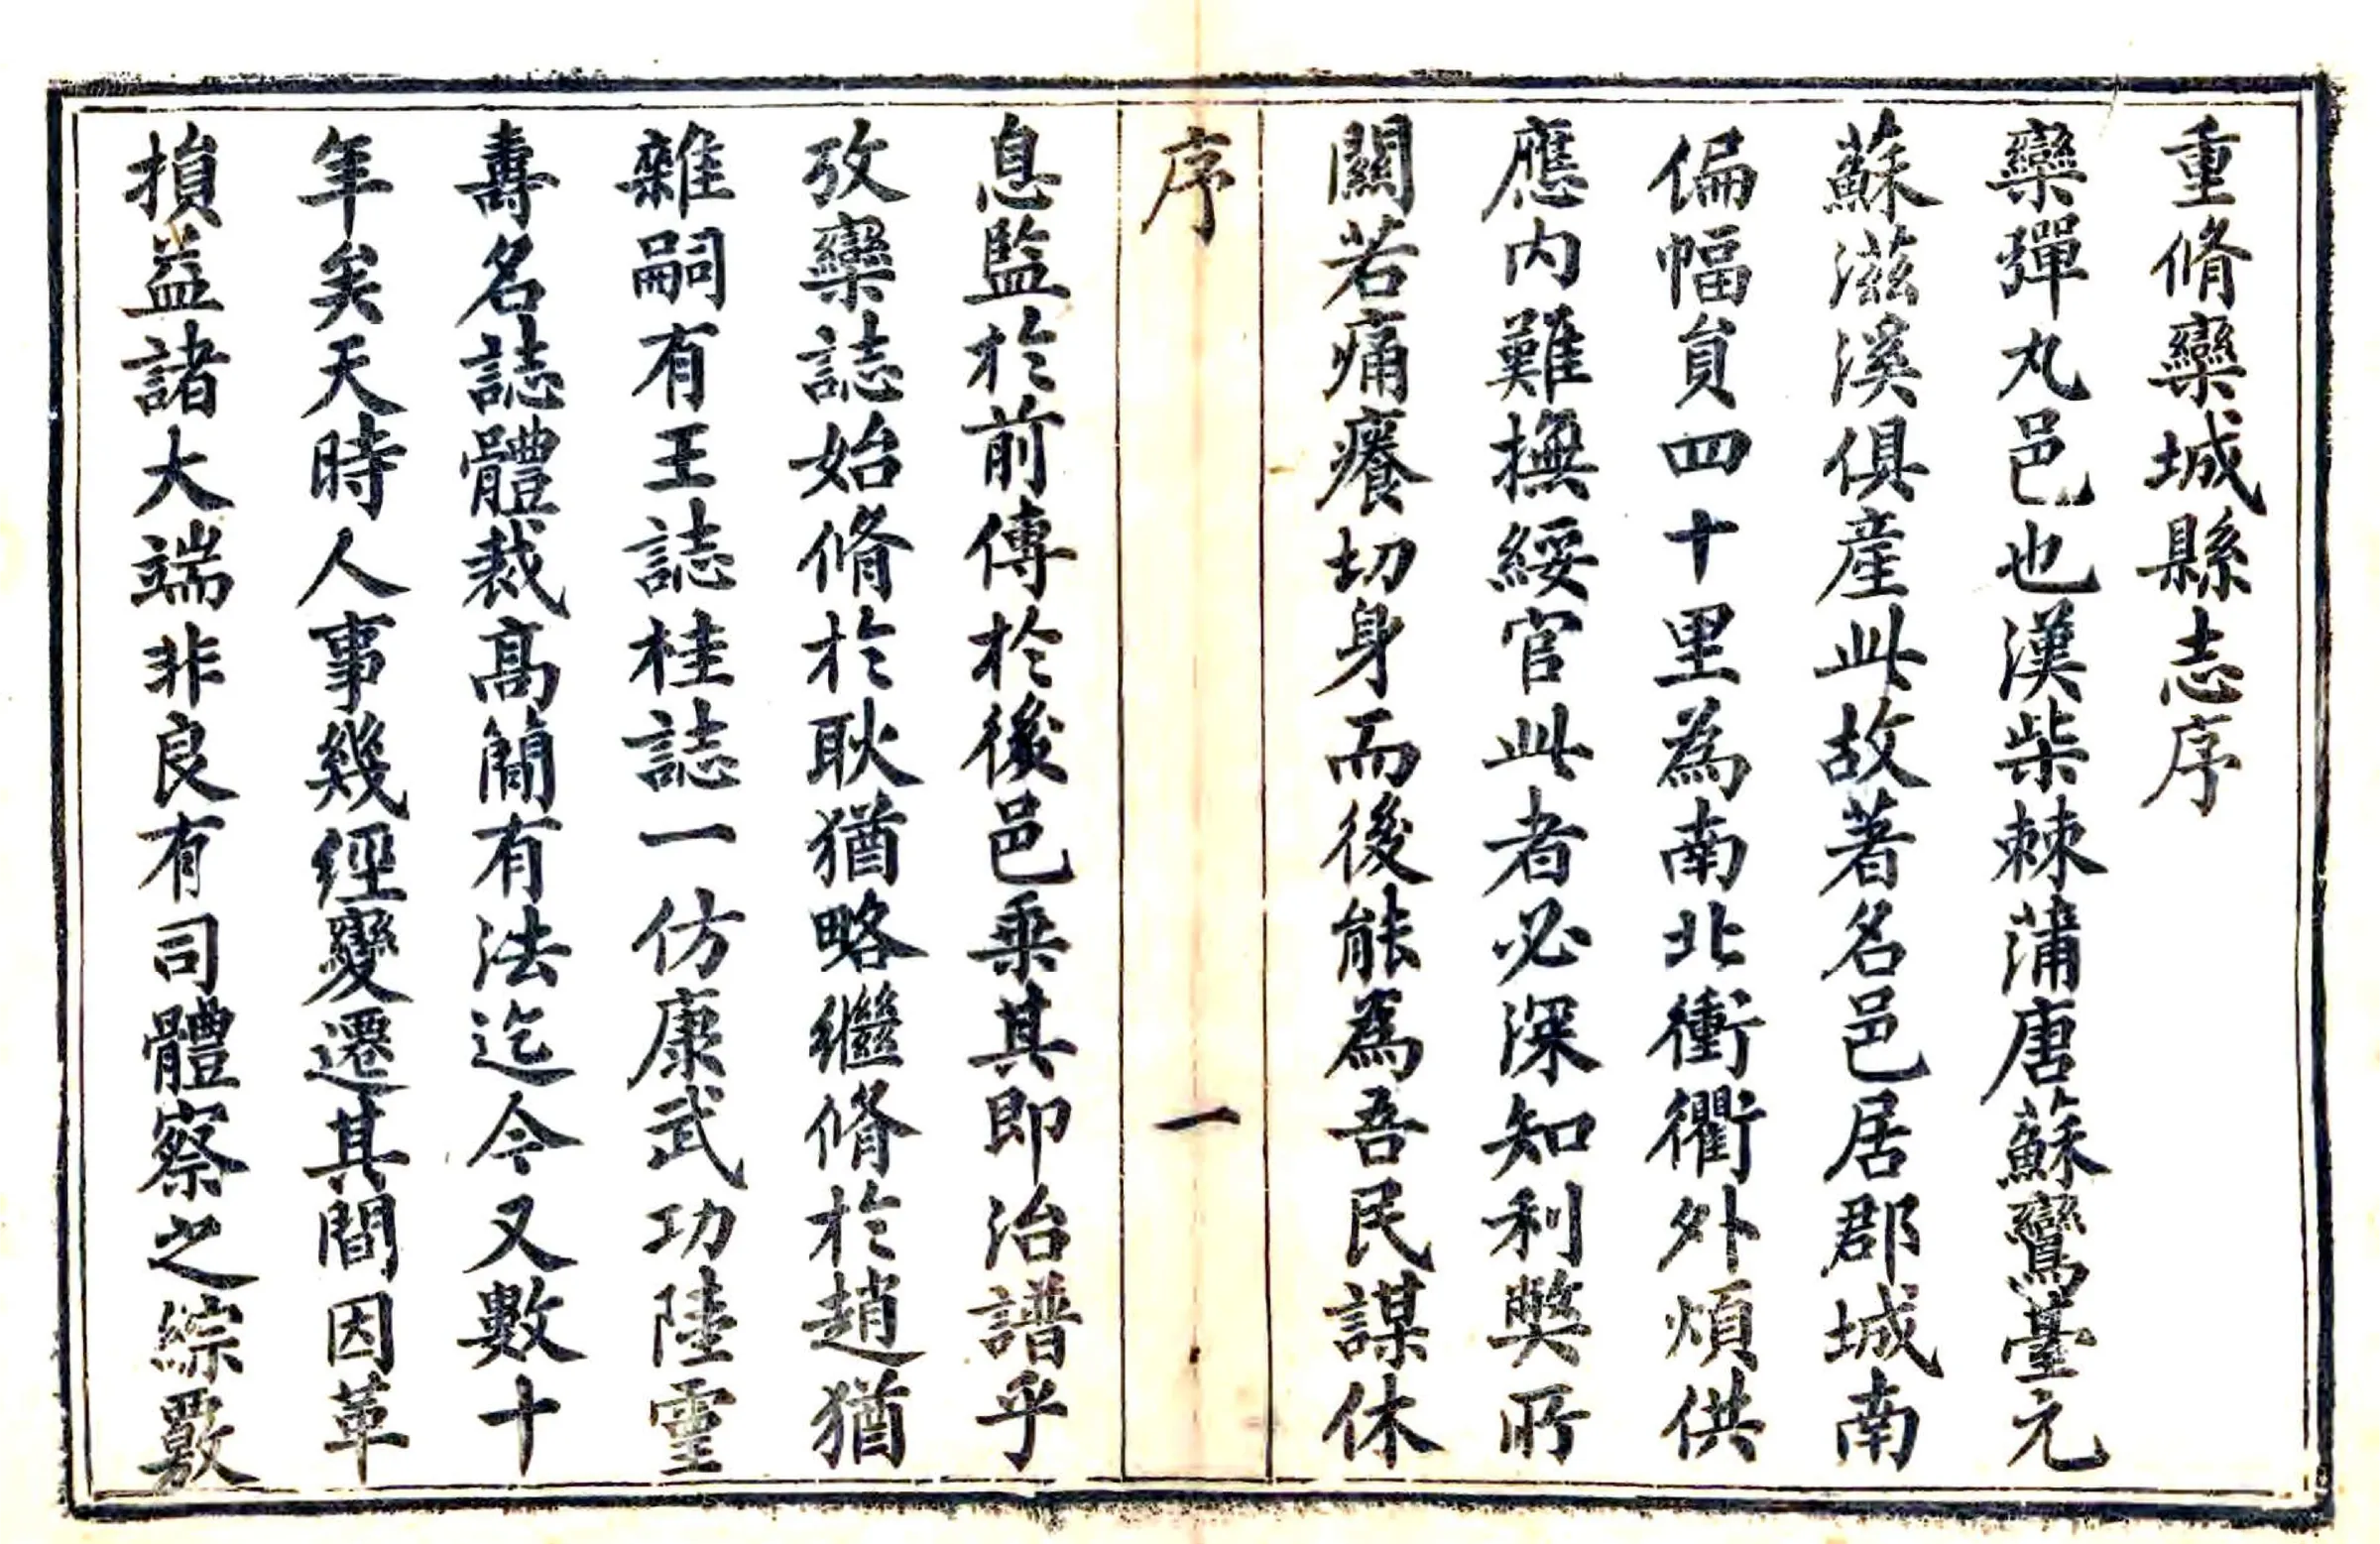 重脩欒城縣志序
欒彈丸邑也漢柴棘蒲唐蘇鸞臺元
蘇滋溪俱産此故著名邑居郡城南
偏幅員四十里為南北衝衢外煩供
應内難撫綏官此者必深知利獘所
關若痛癢切身而後能為吾民謀休
序
一
息監於前傳於後邑乗其即治譜乎
攷欒誌始脩於耿猶略繼脩於趙猶
雜嗣有王誌桂誌一仿康武功陸靈
壽名誌體裁高簡有法迄今又數十
年矣天時人事幾經變遷其間因革
損益諸大端非良有司體察之綜覈